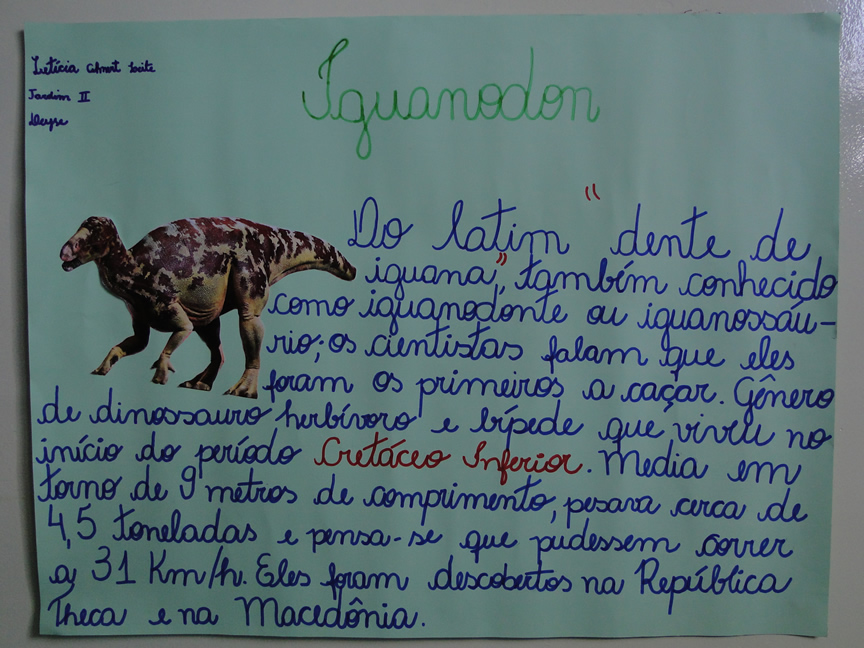 Letícia
Jardim II
Deyse
Iguanodon
Do latim "dente de
iguana", também conhecido
como iguanodonte ou iguanossáu-
rio; os cientistas falam que eles
foram os primeiros a caçar. Gênero
de dinossauro herbívoro e bípede que viveu no
início do período Cretáceo Inferior. Media em
torno de 9 metros de comprimento, pesava cerca de
4,5 toneladas e pensa-se que pudessem correr
a 31 Km/h. Eles foram descobertos na República
Theca e na Macedônia.